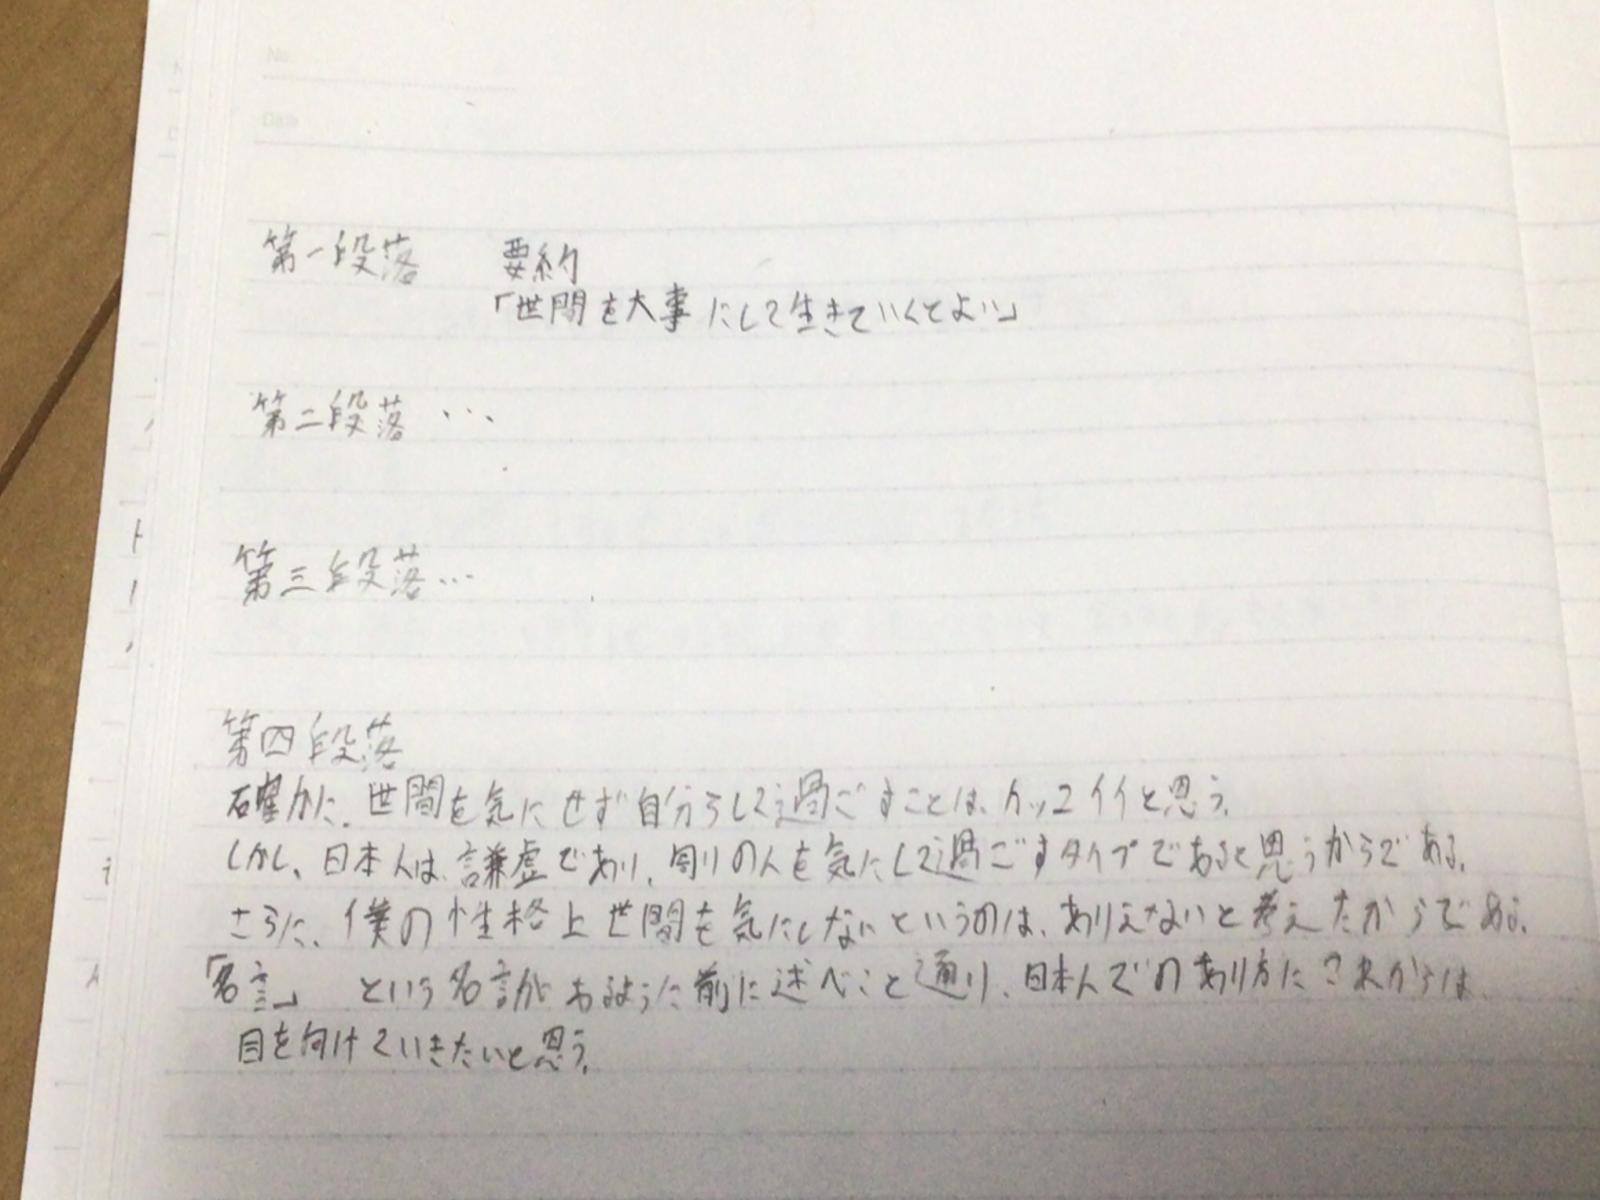 No.
Date
第一段落 要約
「世間を大事にして生きていくとよい」
第二段落 ...
第三段落...
第四段落
確かに、世間を気にせず自分らして過ごすことは、カッコイイと思う。
しかし、日本人は、謙虚であり、周りの人を気にして過ごすタイプであると思うからである。
さらに、僕の性格上世間を気にしないというのは、ありえないと考えたからである。
「名言」 という名言があるように前に述べこと通り、日本人でのあり方にこれからは、
目を向けていきたいと思う。